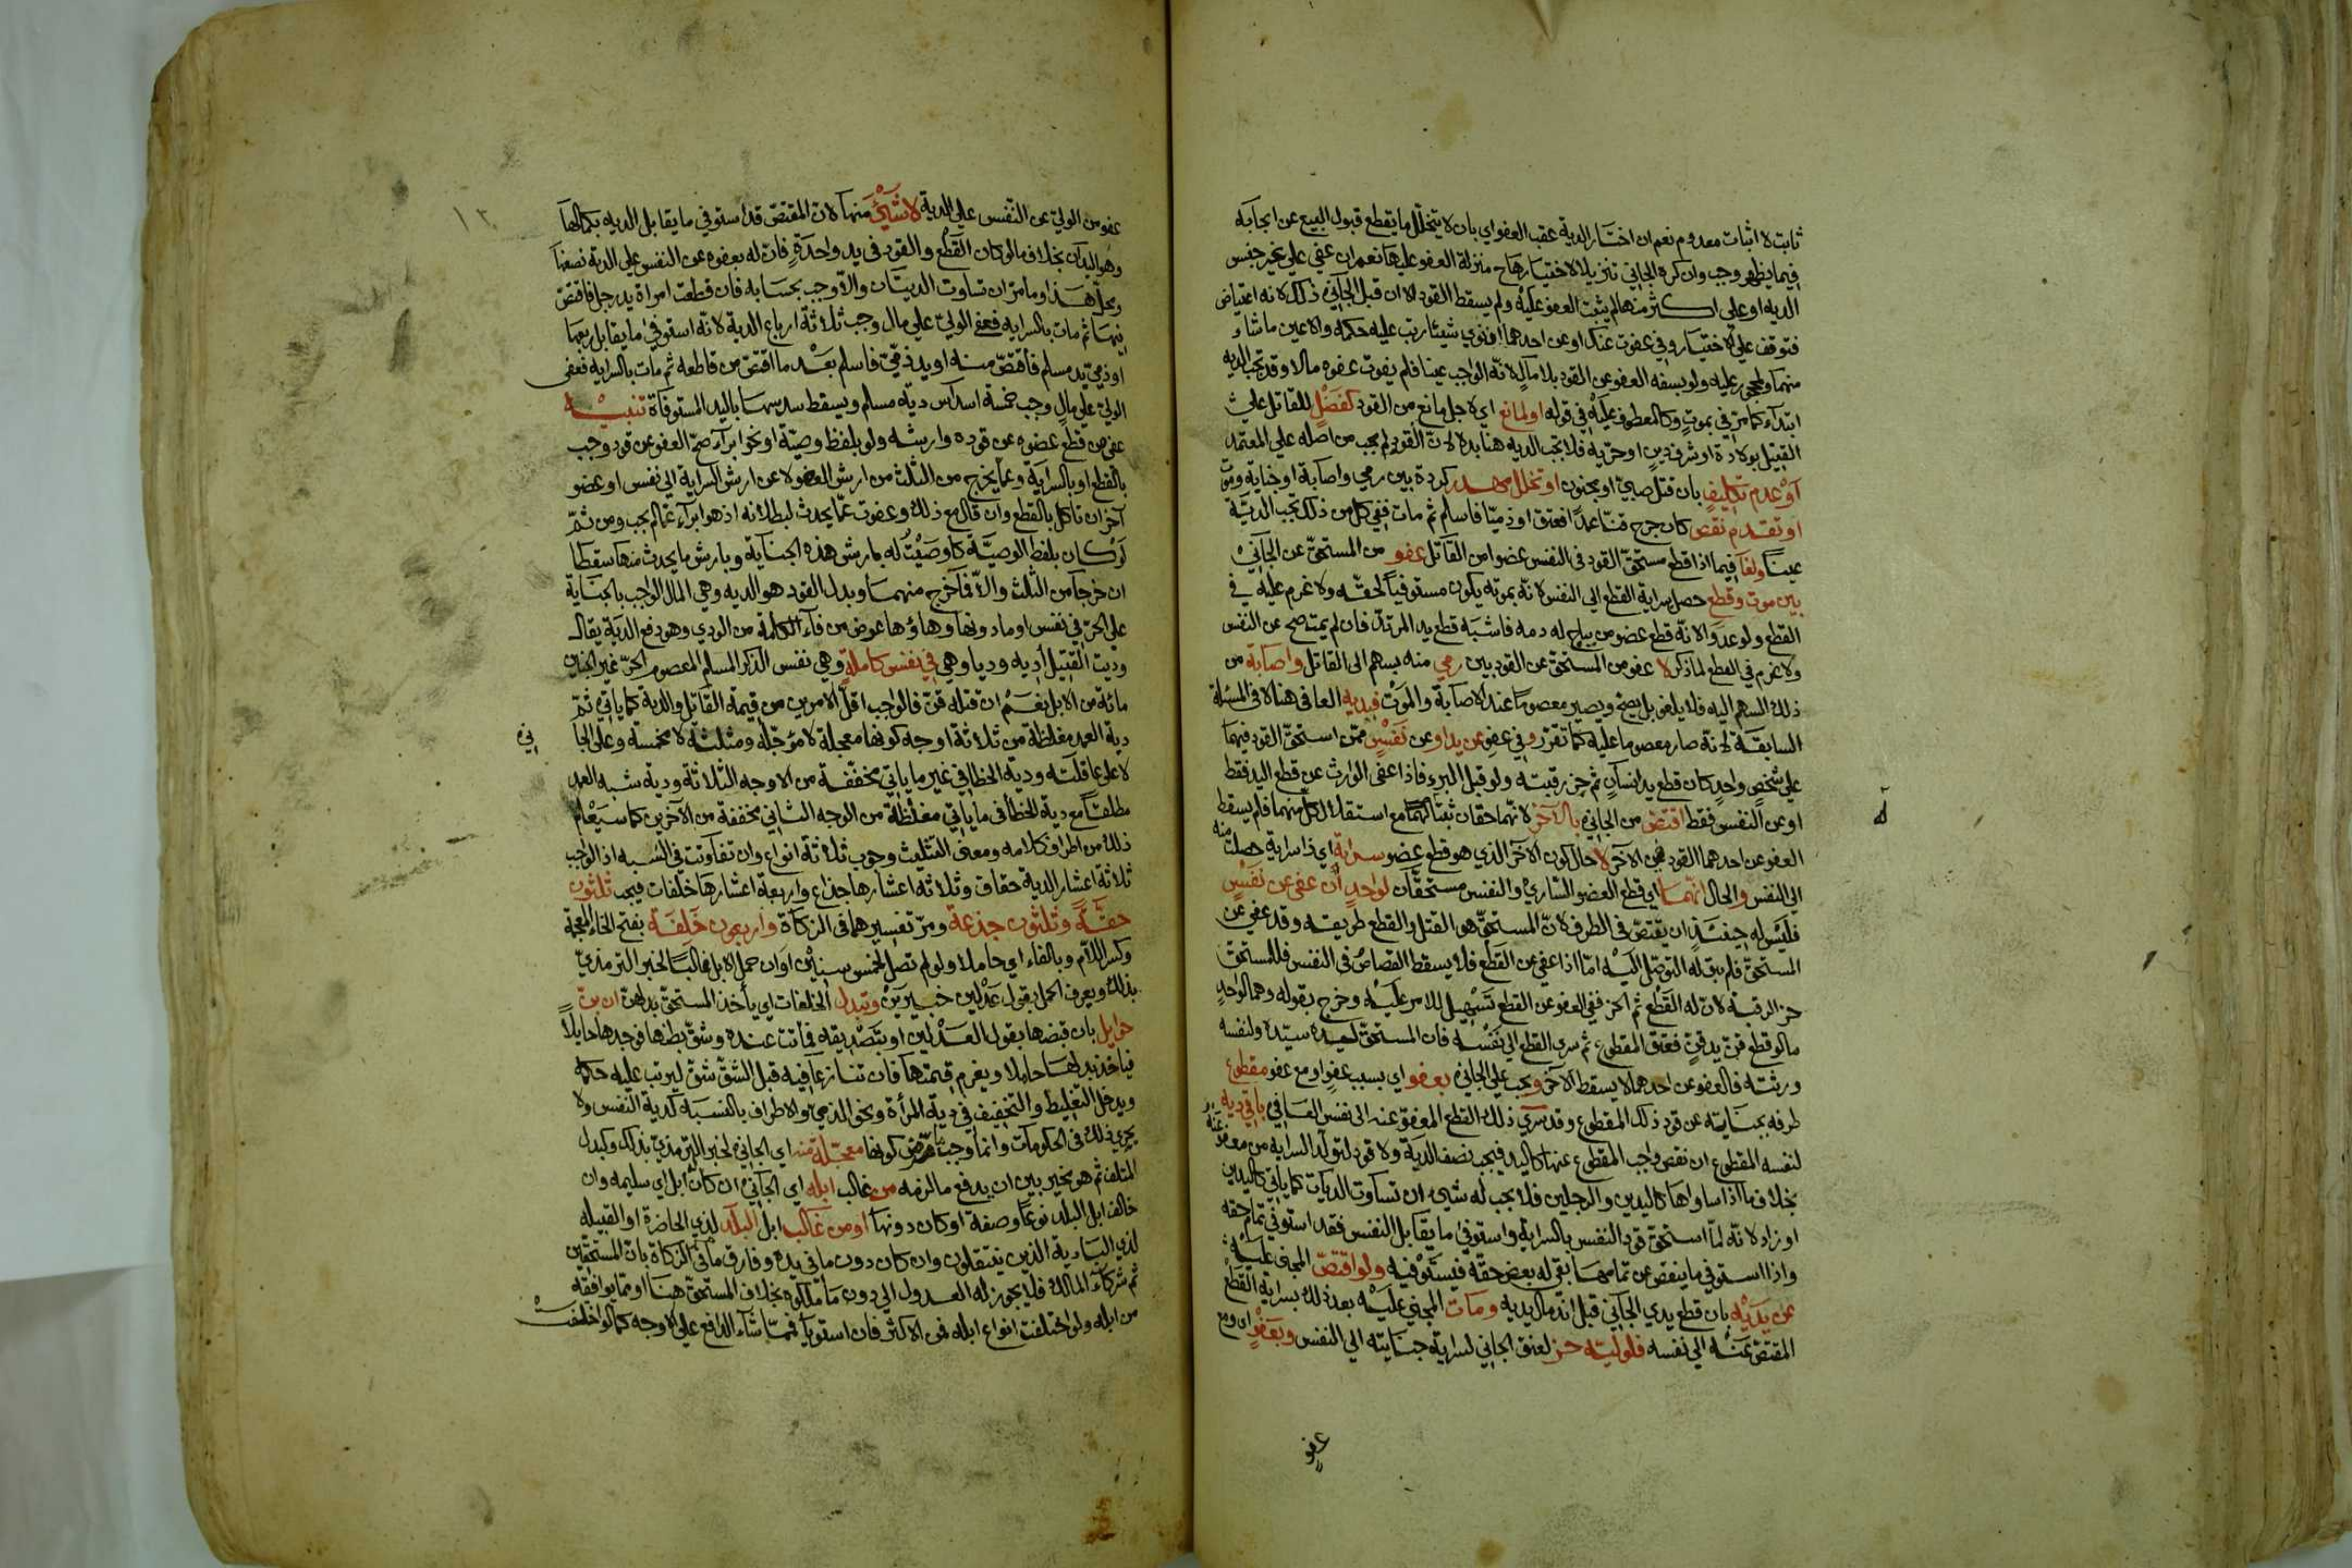 ثابت لا اثبات معدوم نعم ان اختار الدية عقب العفو اي بان لا يتخلل ما يقطع قبول البيع عن ايجابه
فيما يظهر وجب وان كره الجاني تنزيلا لاختيارها ح منزلة العفو عليها نعم ان عفي علي غير جنس
الديه او علي اكثر منها لم يثبت العفو عليه ولم يسقط القود الا ان قبل الجاني ذلك لانه اعتياض
فتوقف علي الاختيار وفي عفوت عنك او عن احدهما ان نوي شيئا رتب عليه حكمه والا عين ما شاء
منهما ولمحجور عليه ولو بسفه العفو عن القود بلا مال لانه الواجب عينا فلم يفوت عفوه مالا وقد تجب الديه
ابتداء كما مر في بموت وكالمعطوف عليه في قوله او لمانع اي لاجل مانع من القود كفضل للقاتل علي
القتيل بولادة او شرف دين او حريه فلا تجب الديه هنا بدلا لان القود لم يجب من اصله علي المعتمد
او عدم تكليف بان قتل صبي او مجنون او تخلل مهدر كردة بين رمي واصابة او جناية وموت
او تقدم نقص كان جرح قنا عمدا فعتق او ذميا فاسلم ثم مات ففي كل من ذلك تجب الدية
عينا ولغا فيما اذا قطع مستحق القود في النفس عضوا من القاتل عفو من المستحق عن الجاني
بين موت وقطع حصل بسراية القطع الي النفس لانه بموته يكون مستوفيا لحقه ولا غرم عليه في
القطع ولو عدوالا لانه قطع عضو من يباح له دمه فاشبه قطع يد المرتد فان لم يمت صح عن النفس
ولا غرم في القطع لما ذكر لا عفو من المستحق عن القود بين رمي منه بسهم الي القاتل واصابة من
ذلك السهم اليه فلا يلغو بل يصح ويصير معصوما عند الاصابة والموت فيديه العافي هنا لا في المسئلة
السابقة لانه صار معصوما عليه كما تقرر وفي عفو عن يد او عن نفس ممن استحق القود فيهما
علي شخص واحد كان قطع يد انسان ثم حز رقبته ولو قبل البرء فاذا عفي الوارث عن قطع اليد فقط
او عن النفس فقط اقتص من الجاني بالاخر لانهما حقان ثبتا لهما مع استقلال كل منهما فلم يسقط
العفو عن احدهما القود في الاخر لا حال كون الاخر الذي هو قطع عضو سراية اي ذا سراية حصلت منه
الي النفس والحال انهما اي قطع العضو الساري والنفس مستحقان لواحد ان عفي عن نفس
فليس له حينئذ ان يقتص في الطرف لان المستحق هو القتل والقطع طريقه وقد عفي عن
المستحق فلم يبق له التوصل اليه اما اذا عفي عن القطع فلا يسقط القصاص في النفس فللمستحق
حز الرقبة لان له القطع ثم الحز ففي العفو عن القطع تسهيل للامر عليه وخرج بقوله وهما لواحد
ما لو قطع قن يد قن فعتق المقطوع ثم سري القطع الي نفسه فان المستحق ليده سيده ولنفسه
ورثته فالعفو عن احدهما لا يسقط الاخر ويجب علي الجاني بعفو اي بسبب عفو او مع عفو مقطوع
طرفه بجنايته عن قود ذلك المقطوع وقد سري ذلك القطع المعفو عنه الي نفس العافي باقي ديه
لنفسه المقطوع ان نقص واجب المقطوع عنها كاليد فيجب نصف الدية ولا قود لتولد السرايه من معفو عنه
بخلاف ما اذا ساواها كاليدين والرجلين فلا يجب له شيء ان تساوت الديات كما ياتي كاليدين
او زاد لانه لما استحق قود النفس بالسراية واستوفي ما يقابل النفس فقد استوفي تمام حقه
واذا استوفي ما ينقص عن تمامها بقي له بعض حقه فيستوفيه ولو اقتص المجني عليه
عن يديه بان قطع يدي الجاني قبل اندمال يديه ومات المجني عليه بعد ذلك بسراية القطع
المقتص عنه الي نفسه فلوليه حز لعنق الجاني لسراية جنايته الي النفس وبعفو اي ومع
عفو
عفو من الولي عن النفس علي الدية لا شيء منها لان المقتص قد استوفي ما يقابل الديه بكمالها
وهو اليدان بخلاف ما لو كان القطع والقود في يد واحدة فان له بعفوه عن النفس علي الدية نصفها
ومحل هذا وما مر ان تساوت الديتان والا وجب بحسابه فان قطعت امراة يد رجل فاقتص
منها ثم مات بالسرايه فعفي الولي علي مال وجب ثلاثة ارباع الدية لانه استوفي ما يقابل ربعها
او ذمي يد مسلم فاقتص منه او يد ذمي فاسلم بعد ما اقتص من قاطعه ثم مات بالسرايه فعفي
الولي علي مال وجب خمسة اسداس دية مسلم ويسقط سدسها باليد المستوفاة تنبيه
عفي من قطع عضوه عن قوده وارشه ولو بلفظ وصية او نحو ابراء صح العفو عن قود وجب
بالقطع او بالسراية وعما يخرج من الثلث من ارش العضو لا عن ارش السراية الي نفس او عضو
آخر ان تاكل بالقطع وان قال مع ذلك وعفوت عما يحدث لبطلانه اذ هو ابراء عما لم يجب ومن ثم
لو كان بلفظ الوصية كاوصيت له بارش هذه الجناية وبارش ما يحدث منها سقطا
ان خرجا من الثلث والا فما خرج منهما وبدل القود هو الديه وهي المال الواجب بالجناية
علي الحر في نفس او ما دونها وهاؤها عوض من فاء الكلمة من الودي وهو دفع الدية يقال
وديت القتيل أديه وديا وهي في نفس كاملة وهي نفس الذكر المسلم المعصوم الحر غير الجنين
مائة من الابل نعم ان قتله قن فالواجب اقل الامرين من قيمة القاتل والدية كما ياتي ثم
دية العمد مغلظة من ثلاثة اوجه كونها معجلة لا مؤجلة ومثلثة لا مخمسة وعلي الجا
ني
لا علي عاقلته ودية الخطا في غير ما ياتي مخففة من الاوجه الثلاثة ودية شبه العمد
مطلقا مع دية الخطا في ما ياتي مغلظة من الوجه الثاني مخففة من الآخرين كما سيعلم
ذلك من اطراف كلامه ومعني التثليث وجوب ثلاثة انواع وان تفاوتت في النسبه اذ الواجب
ثلاثة اعشار الدية حقاق وثلاثه اعشارها جذاع واربعة اعشارها خلفات فيجب ثلثون
حقة وثلثون جذعة ومر تفسيرهما في الزكاة واربعون خلفة بفتح الخاء المعجمة
وكسر اللام وبالفاء اي حاملا ولو لم تصل لخمس سنين اوان حمل الابل غالبا لخبر الترمذي
بذلك ويعرف الحمل بقول عدلين خبيرين وتبدل الخلفات اي ياخذ المستحق بدلهن ان بن
حوايل بان قبضها بقول العدلين او بتصديقه فماتت عنده وشق بطنها فوجدها حايلا
فياخذ بدلها حاملا ويغرم قيمتها فان تنازعا فيه قبل الشق شق ليرتب عليه حكمه
ويدخل التغليظ والتخفيف في دية المرأة ونحو الذمي والاطراف بالنسبة لدية النفس ولا
يجري ذلك في الحكومات وانما وجب ما مر من كونها معجلة منه اي الجاني لخبر الترمذي بذلك وكبدل
المتلف ثم هو مخير بين ان يدفع ما لزمه من غالب ابله اي الجاني ان كان ابل اي سليمه وان
خالف ابل البلد نوعا وصفة او كان دونها او من غالب ابل البلد لذي الحاضرة او القبيله
لذي البادية الذين ينتقلون وان كان دون ما في يده وفارق ما في الزكاة بان المستحقين
ثم شركاء المالك فلا يجوز له العدول الي دون ما ملكوه بخلاف المستحق هنا او مما يوافقه
من ابله ولو اختلفت انواع ابله فمن الاكثر فان استويا فمما شاء الدافع علي الاوجه كما لو اختلفت